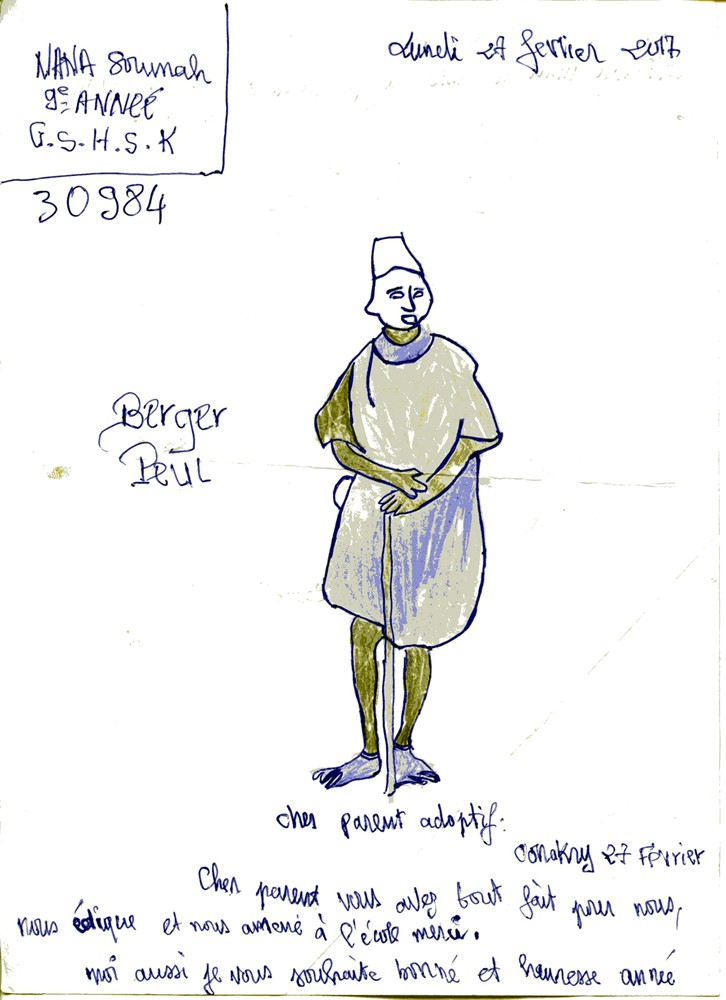 NANA Soumah
9e ANNÉE
G.S.H.S.K
30984
Lundi 27 fevrier 2017
Berger
Peul
cher parent adoptif:
Conakry 27 Février
Cher parent vous avez tout fait pour nous,
nous édique et nous amené à l'école merci.
moi aussi je vous souhaite bonné et heuresse année